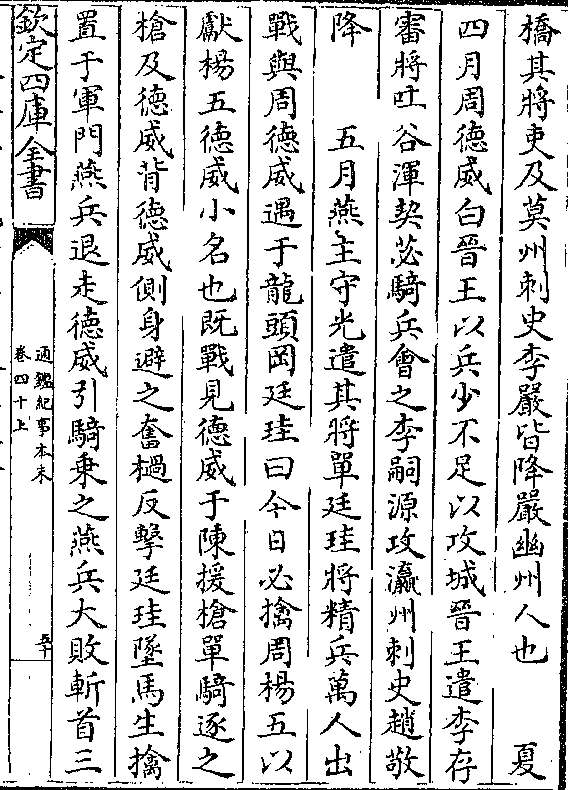 橋其將吏及莫州刺史李嚴皆降嚴幽州人也　夏
四月周德威白晉王以兵少不足以攻城晉王遣李存
審將吐谷渾契苾騎兵會之李嗣源攻瀛州刺史趙敬
降　五月燕主守光遣其將單廷珪將精兵萬人出
戰與周德威遇于龍頭岡廷珪曰今日必擒周楊五以
獻楊五德威小名也既戰見德威于陳援槍單騎逐之
槍及德威背德威側身避之奮檛反擊廷珪墜馬生擒
置于軍門燕兵退走德威引騎乘之燕兵大敗斬首三
欽定四庫全書
通鑑紀事本末
卷四十上
五十